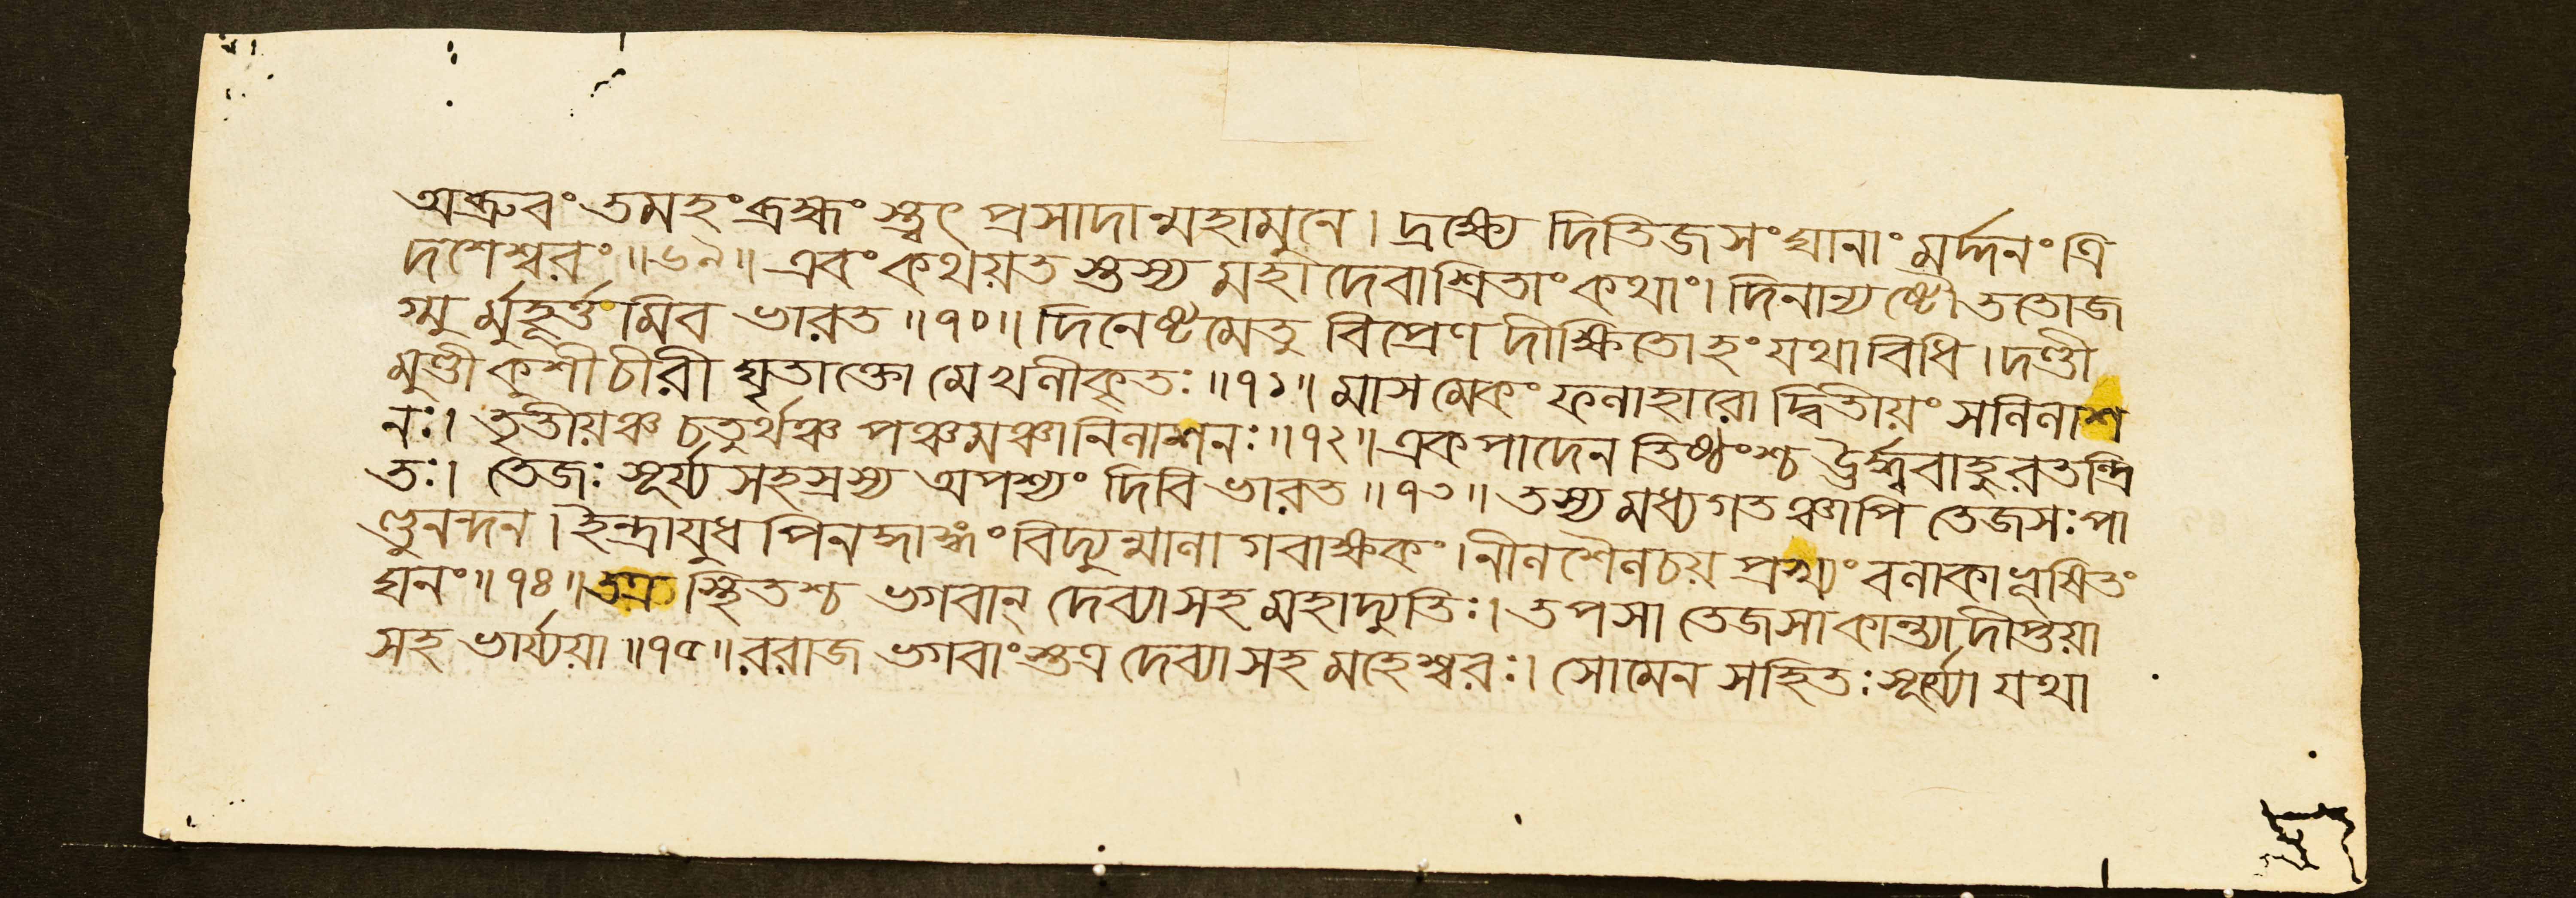 অব্রুবং তমহং ব্রহ্মং স্ত্বৎ প্রসাদান্মহামুনে। দ্রক্ষ্যে দিতিজসংঘানাং মর্দ্দনং ত্রি
দশেশ্বরং॥৬৯॥ এবং কথয়ত স্তস্য মহাদেবাশ্রিতাং কথাং। দিনান্যষ্টৌ ততোজ
গ্মু র্মুহূর্ত্তমিব ভারত॥৭০॥ দিনেষ্টমেতু বিপ্রেণ দীক্ষিতোহং যথাবিধি। দণ্ডী
মুণ্ডী কুশীচীরী ঘৃতাক্তো মেখলীকৃতঃ॥৭১॥ মাসমেকং ফলাহারো দ্বিতীয়ং সলিলাশ
নঃ। তৃতীয়ঞ্চ চতুর্থঞ্চ পঞ্চমঞ্চানিলাশনঃ॥৭২॥ একপাদেন তিষ্ঠংশ্চ ঊর্দ্ধ্ববাহুরতন্দ্রি
তঃ। তেজঃ সূর্য্যসহস্রস্য অপশ্যং দিবি ভারত॥৭৩॥ তস্য মধ্যগতঞ্চাপি তেজসঃ পা
ণ্ডুনন্দন। ইন্দ্রাযুধ পিনদ্ধাঙ্গং বিদ্যুন্মালা গবাক্ষকং। নীলশৈলচয় প্রখ্যং বলাকাভূষিতং
ঘনং॥৭৪॥ তত্র স্থিতশ্চ ভগবান্ দেব্যাসহ মহাদ্যুতিঃ। তপসা তেজসা কান্ত্যা দীপ্তয়া
সহ ভার্য্যয়া॥৭৫॥ ররাজ ভগবাংস্তত্র দেব্যাসহ মহেশ্বরঃ। সোমেন সহিতঃ সূর্য্যো যথা